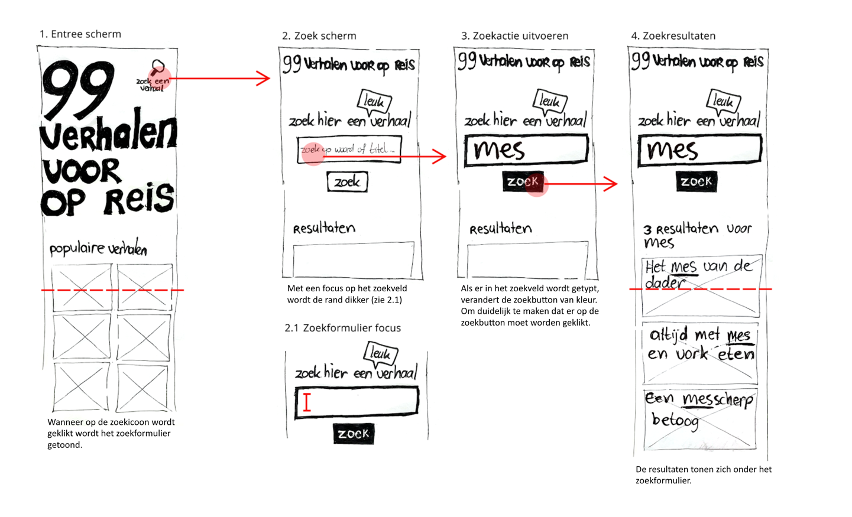 1. Entree scherm
99
VERHALEN
VOOR
OP REIS
zoek een
verhaal
populaire verhalen
Wanneer op de zoekicoon wordt
geklikt wordt het zoekformulier
getoond.
2. Zoek scherm
99 Verhalen voor op Reis
leuk
zoek hier een verhaal
zoek op word of titel...
zoek
Resultaten
Met een focus op het zoekveld
wordt de rand dikker (zie 2.1)
2.1 Zoekformulier focus
leuk
zoek hier een verhaal
zoek
3. Zoekactie uitvoeren
99 Verhalen voor op Reis
leuk
zoek hier een verhaal
mes
zoek
Resultaten
Als er in het zoekveld wordt getypt,
verandert de zoekbutton van kleur.
Om duidelijk te maken dat er op de
zoekbutton moet worden geklikt.
4. Zoekresultaten
99 Verhalen voor op Reis
leuk
zoek hier een verhaal
mes
zoek
3 Resultaten voor
mes
Het mes van de
dader
altijd met mes
en vork eten
Een messcherp
betoog
De resultaten tonen zich onder het
zoekformulier.